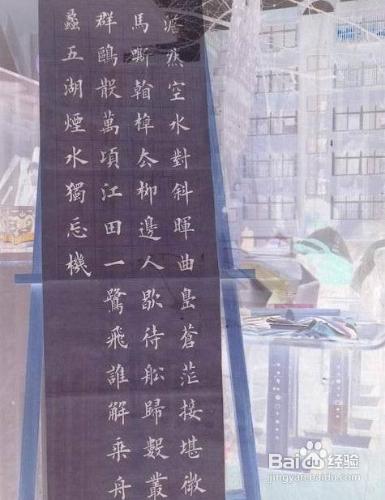 澹然空水對斜暉曲島蒼茫接堪微
馬嘶翰棹厺柳邊人歇待船歸數叢
群鷗散萬頃江田一鷺飛誰解乘舟
蠡五湖煙水獨忘機
Baidu经验
jingyan.baidu.com